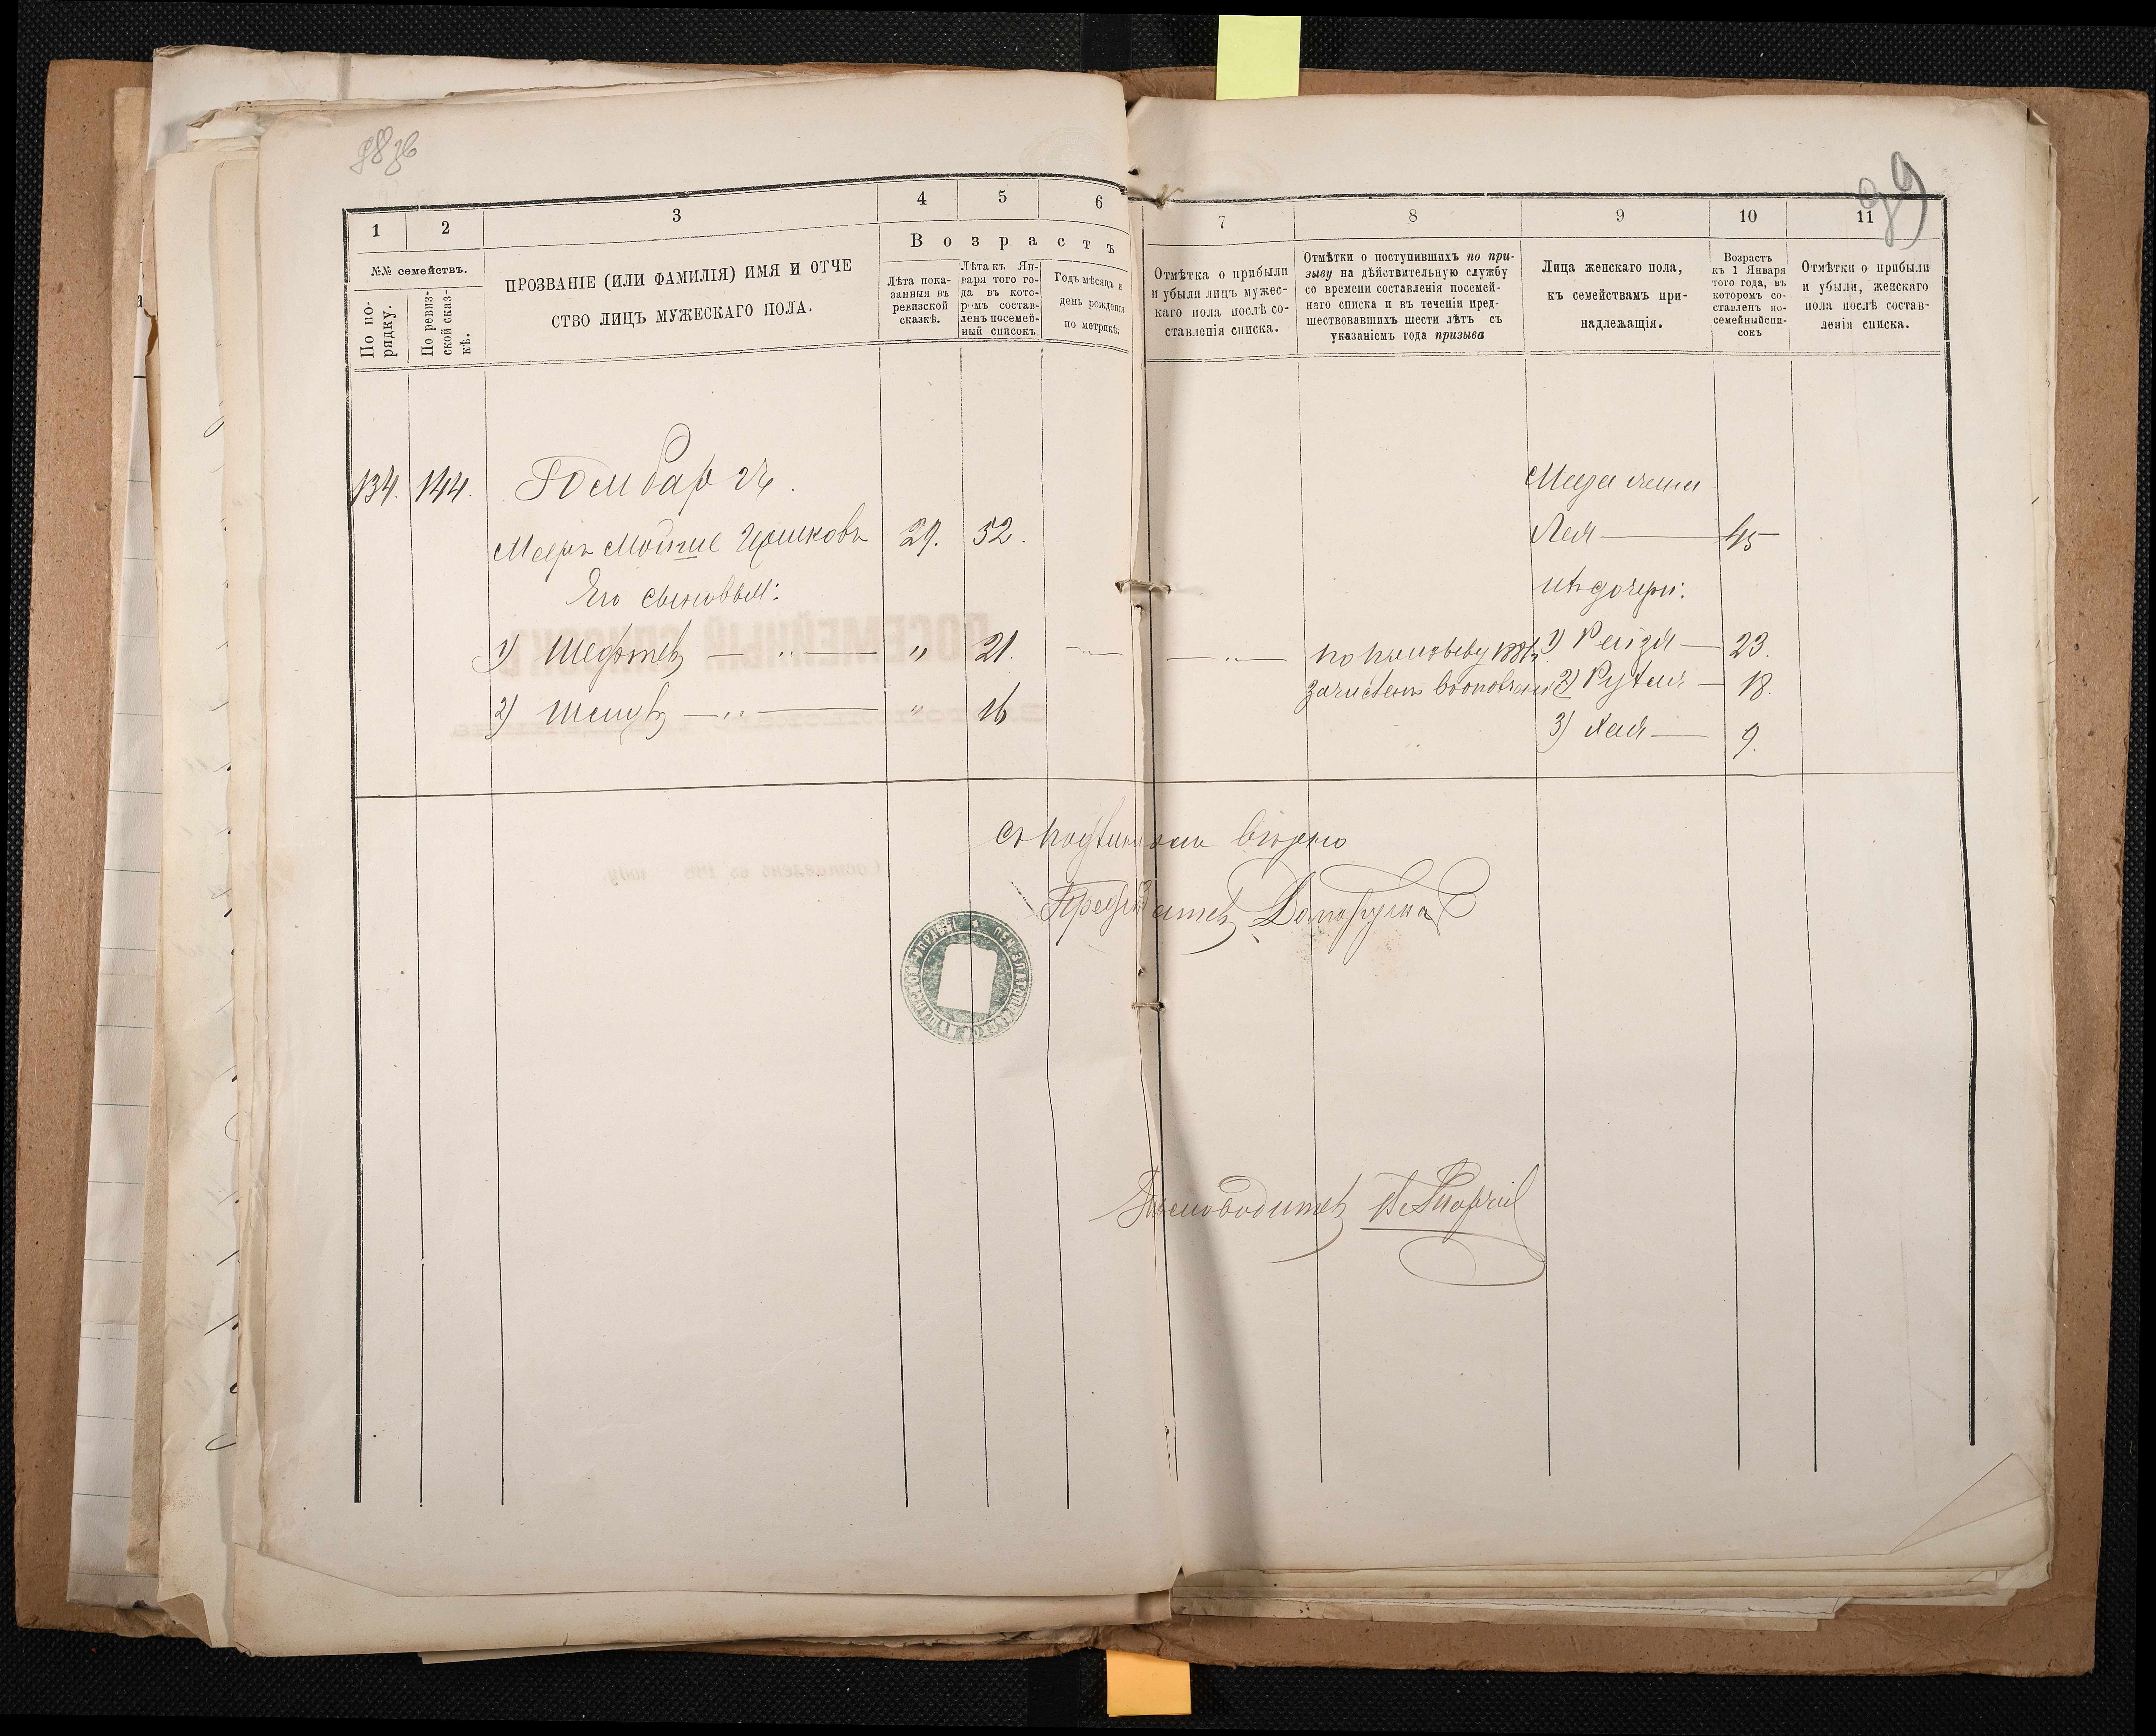 98 об
99
1
2
3
4
5
6
7
8
9
10
11
№№ семействъ.
По по-
рядку.
По ревиз-
ской сказ-
кѣ.
ПРОЗВАНІЕ (ИЛИ ФАМИЛІЯ) ИМЯ И ОТЧЕ
СТВО ЛИЦЪ МУЖЕСКАГО ПОЛА.
Возрастъ
Лѣта пока-
занныя въ
ревизской
сказкѣ.
Лѣта къ Ян-
варя того го-
да въ кото-
ромъ состав-
ленъ посемей-
ный списокъ.
Годъ мѣсяцъ и
день рожденія
по метрикѣ.
Отмѣтка о прибыли
и убыли лицъ мужес-
каго пола послѣ со-
ставленія списка.
Отмѣтки о поступившихъ по при-
зыву на дѣйствительную службу
со времени составленія посемей-
наго списка и въ теченіи пред-
шествовавшихъ шести лѣтъ съ
указаніемъ года призыва
Лица женскаго пола,
къ семействамъ при-
надлежащія.
Возрастъ
къ 1 Января
того года, въ
которомъ со-
ставленъ по-
семейный спи-
сокъ
Отмѣтки о прибыли
и убыли, женскаго
пола послѣ состав-
ленія списка.
134. 144. Гольбарг
Меера жена
Мееръ Мойше Гершковъ 29. 52.
Лея 45
Его сыновья:
ихъ дочери:
1) Шефтель " 21. по призыву 1881 г. 1) Рейзя 23.
зачисленъ въ ополченіе 2) Рухля 18.
2) " 16
3) Хая 9.
съ подлиннымъ вѣрно
Предсѣдатель
Дѣлопроизводитель